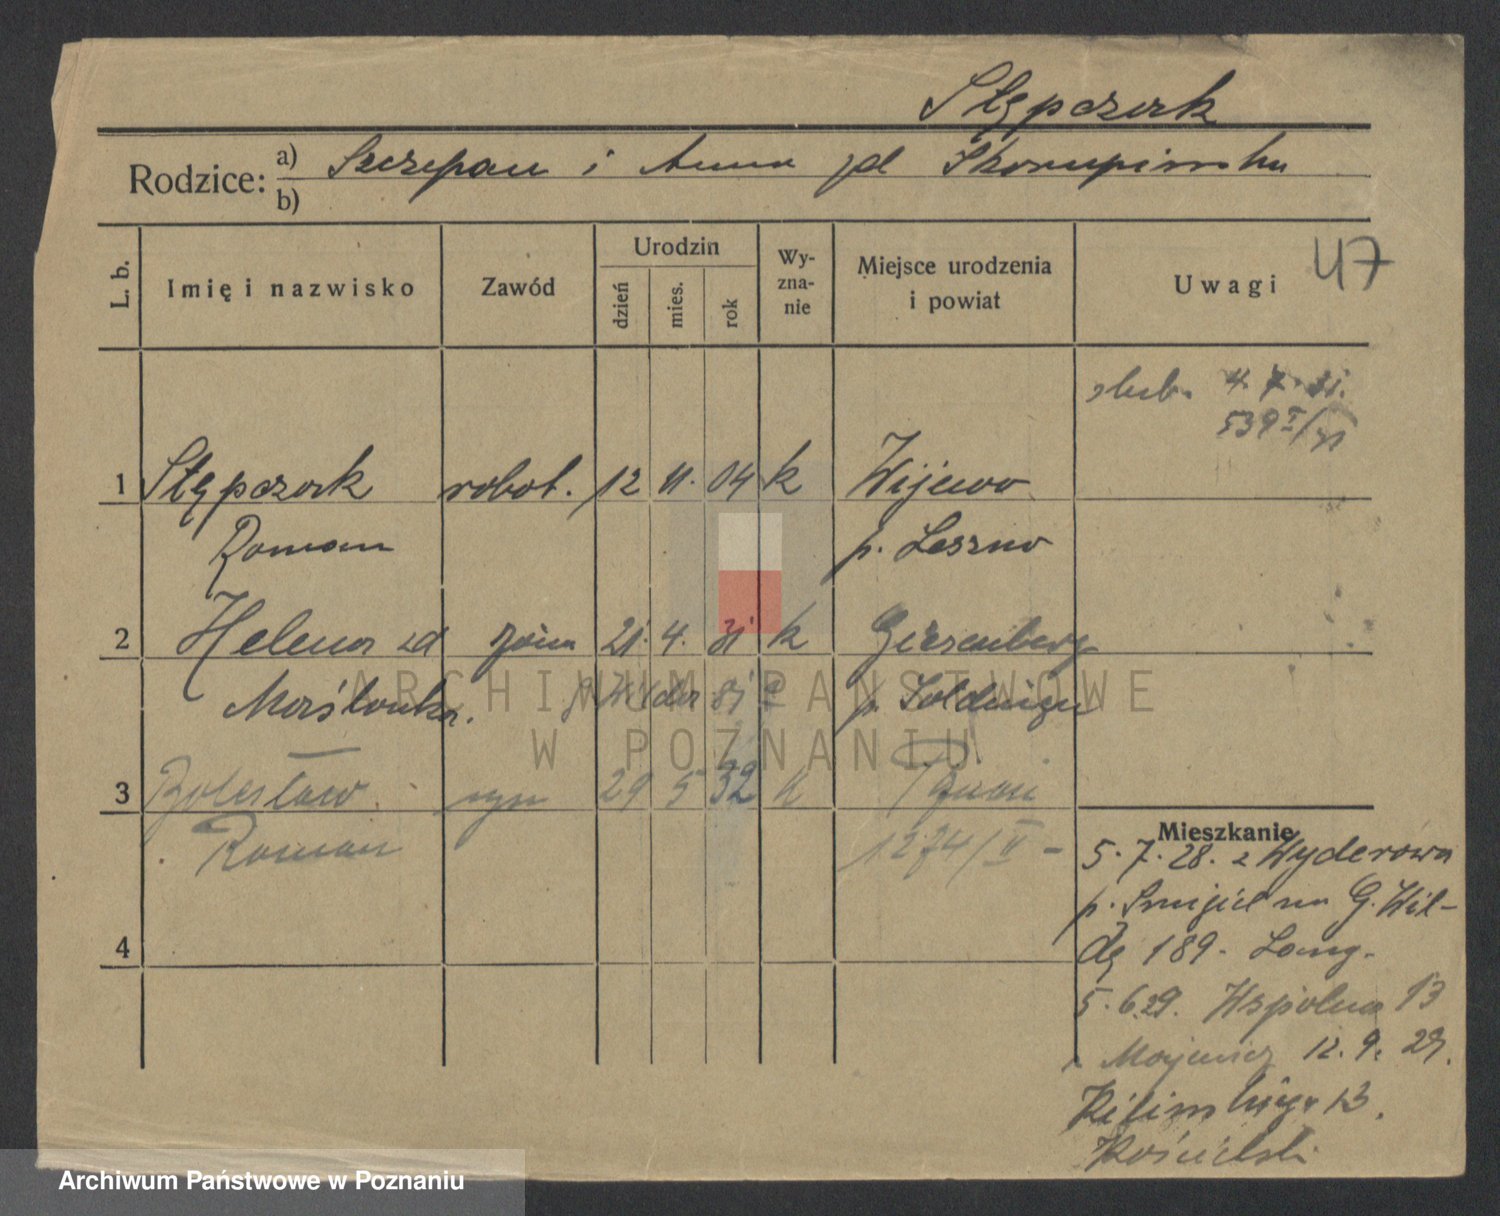 Stępczak
Rodzice: a) Szczepan i Anna zd Skorupińska
b)
L. b. Imię i nazwisko Zawód Urodzin dzień mies. rok Wy-zna-nie Miejsce urodzenia i powiat Uwagi 47
ślub. 4. 7. 31.
539
1 Stępczak robot. 12 11. 04 k Wijewo
Roman p. Leszno
2 Helena zd żona 21. 4. k
Maślonka. p. Soldin
3 Bolesław syn 29 5 32 k Poznań
Roman 1274/II -
4
Mieszkanie
5. 7. 28. z Wyderowa
p. Śmigiel na G. Wil-
dę 189. Lang.
5. 6. 29. Wspólna 13
12. 9. 29.
Kilińskiego 13.
Kościelski
ARCHIWUM PAŃSTWOWE
W POZNANIU
Archiwum Państwowe w Poznaniu